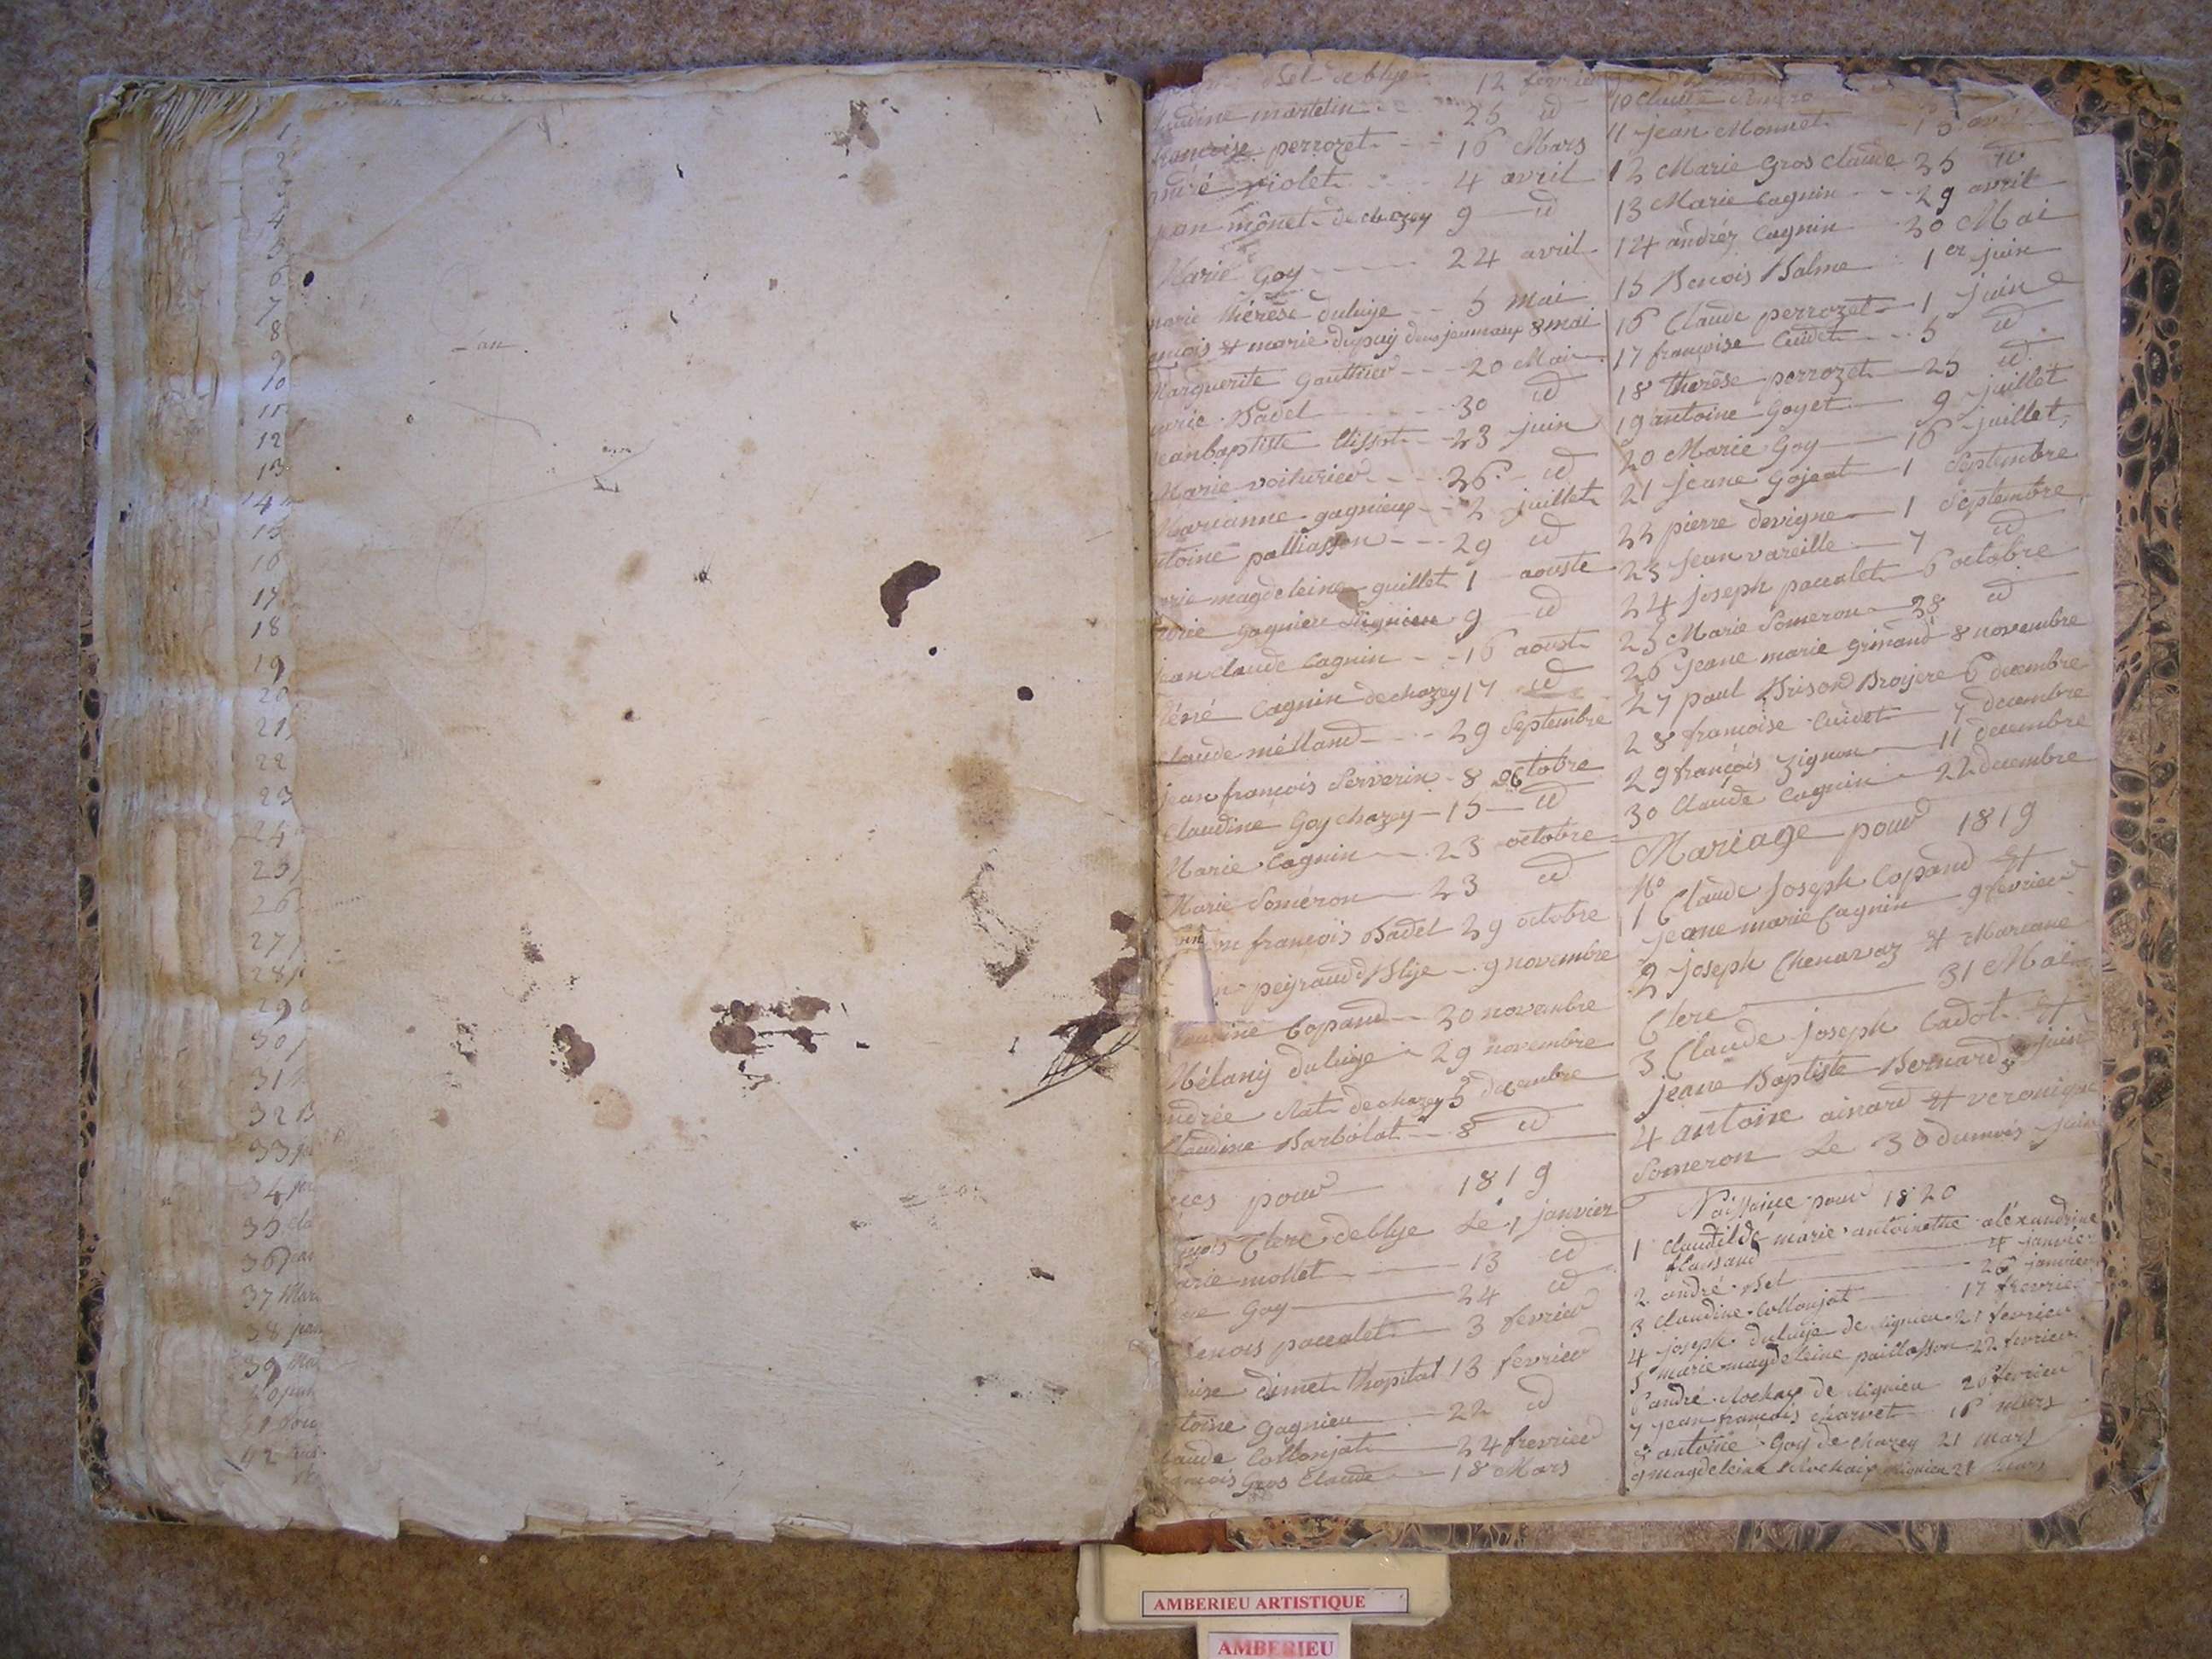 1
2
3
4
5
6
7
8
9
10
11
12
13
14
15
16
17
18
19
20
21
22
23
24
25
26
27
28
29
30
31
32 B
33
34
35 cla
36 jea
37 Mar
38
39 Ma
40
42
Bel de blye 12
martelin 25 id
françoise perrozet 16 Mars
andré violet 4 avril
jean mônet de chazey 9 id
Marie Goy 24 avril
marie thérèse duluije 5 mai
& marie dupuy deux jeumaux 8 mai
Marguerite Gauthier 20 Mai
marie Badel 30 id
jeanbaptiste Clissot 23 juin
Marie voiturier 26 id
Marianne gagnieux 2 juillet
antoine palliasson 29 id
magdeleine guillet 1 aouste
gagnieu Lignieu 9 id
jean claude Cagnin 16 aoust
Cagnin de chazey 17 id
Claude mélland 29 Septembre
jean françois Serverin 8 octobre
Claudine Goy chazey 15 id
Marie Cagnin 23 octobre
Marie Someron 23 id
françois Badel 29 octobre
peyraud Blye 9 novembre
Copand 30 novembre
Mélany duluije 29 novembre
andrée de chazey 5 decembre
Claudine Barbolat 8 id
pour 1819
Clerc de blye Le 1 janvier
marie mollet 13 id
Goy 24 id
benois paccalet 3 fevrier
dimet Lhopital 13 fevrier
antoine Gagnieu 22 id
Claude Collonjat 24 frevrier
Gros Claude 18 Mars
10 Claude
11 jean Monnet 15
12 Marie Gros Claude 25 id
13 Marie Cagnin 29 avril
14 andréz Cagnin 30 Mai
15 Benois Balme 1er juin
16 Claude perrozet 1 juin
17 françoise Cuidet 5 id
18 therèse perrozet 25 id
19 antoine Goyet 9 juillet
20 Marie Goy 16 juillet
21 jeane Gojeat 1 Septembre
22 pierre devigne 1 Septembre
23 jean vareille 7 id
24 joseph paccalet 6 octobre
25 Marie Someron 28 id
26 jeane marie grimand 8 novembre
27 paul Brison Broijere 6 decembre
28 françoise Cuidet 7 decembre
29 françois Zignon 11 decembre
30 Claude Cagnin 22 decembre
Mariage pour 1819
No
1 Claude Joseph Copand &
jeane marie Cagnin 9 fevrier
2 joseph Chenavaz & Mariane
Clerc 31 Mai
3 Claude joseph Cadot &
jeane Baptiste Bernard juin
4 antoine ainard & veronique
Someron Le 30 du mois juin
Naissance pour 1820
1 claudilde marie antoinethe aléxandrine
flaisand 4 janvier
2 andré Bel 26 janvier
3 Claudine Collonjat 17 frevrier
4 joseph duluije de Lignieu 21 fevrier
5 marie magdeleine paillasson 22 fevrier
6 andré de Lignieu 26 fevrier
7 jean françois charvet 16 mars
8 antoine Goy de chazey 21 mars
9 magdeleine Lignieu 21 mars
AMBERIEU ARTISTIQUE
AMBERIEU